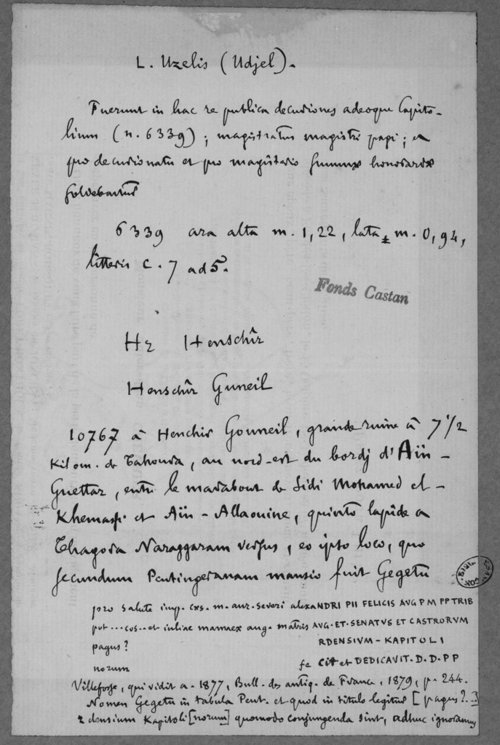 L. Uzelis (Udjel).
Fuerunt in hac re publica decuriones adeoque Capito-
lium (n. 6339); magistratus magistri pagi; a
pro decurionatu et pro magisterio summae honorariae
solvebantur
6339 ara alta m. 1,22, lata ± m. 0,94,
litteris c. 7 ad 5.
Fonds Castan
Hr Henschîr
Henschîr Guneil
10767 à Henchir Gouneil, grande ruine à 7 1/2
Kilom. de Tahoura, au nord-est du bordj d'Aïn-
Guettar, entre le marabout de Sidi Mohamed el-
Khemassi et Aïn-Allaouine, quinto lapide a
Thagora Naraggaram versus, eo ipso loco, quo
secundum Peutingeranam mansio fuit Gegetu
pro salute imp. caes. m. aur. severi alexANDRI PII FELICIS AVG P M PP TRIB
pot ... cos.. et iuliae mamaeae aug. matris AVG. ET. SENATVS ET CASTRORVM
pagus? RDENSIVM - KAPITOLI
norum fe CIT et DEDICAVIT. D. D. P P
Villefosse, qui vidit a. 1877, Bull. des antiq. de France, 1879, p. 244.
Nomen Gegetu in tabula Peut. et quod in titulo legitur [pagus?..]
rdensium Kapitoli[norum] quomodo conjungenda sint, adhuc ignoramus